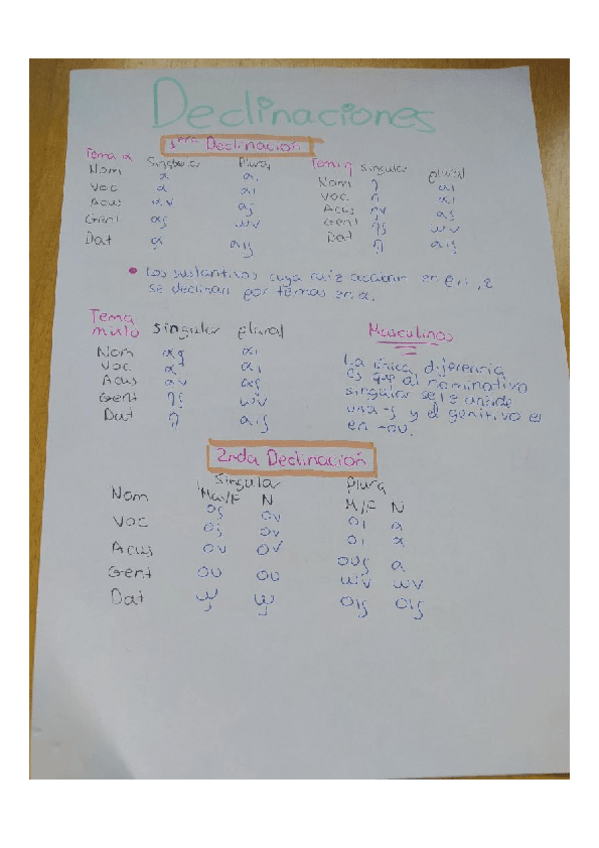 Declinaciones
1era Declinación
Tema α Singular Plural
Nom α αι
Voc α αι
Acus αν ας
Gent ας ων
Dat ᾳ αις
Tema η singular plural
Nom η αι
Voc η αι
Acus ην ας
Gent ης ων
Dat ῃ αις
• Los sustantivos cuya raiz acaban en ε, ι,
se declinan por temas en α.
Tema
mixto singular plural
Nom αι
Voc αι
Acus αν ας
Gent ης ων
Dat ῃ αις
Masculinos
La única diferencia
es que al nominativo
singular se le añade
una -ς y el genitivo es
en -ου.
2nda Declinación
Singular Plura
M/F N M/F N
Nom ος ον οι α
Voc ον οι α
Acus ον ον ους α
Gent ου ου ων ων
Dat ῳ ῳ οις οις